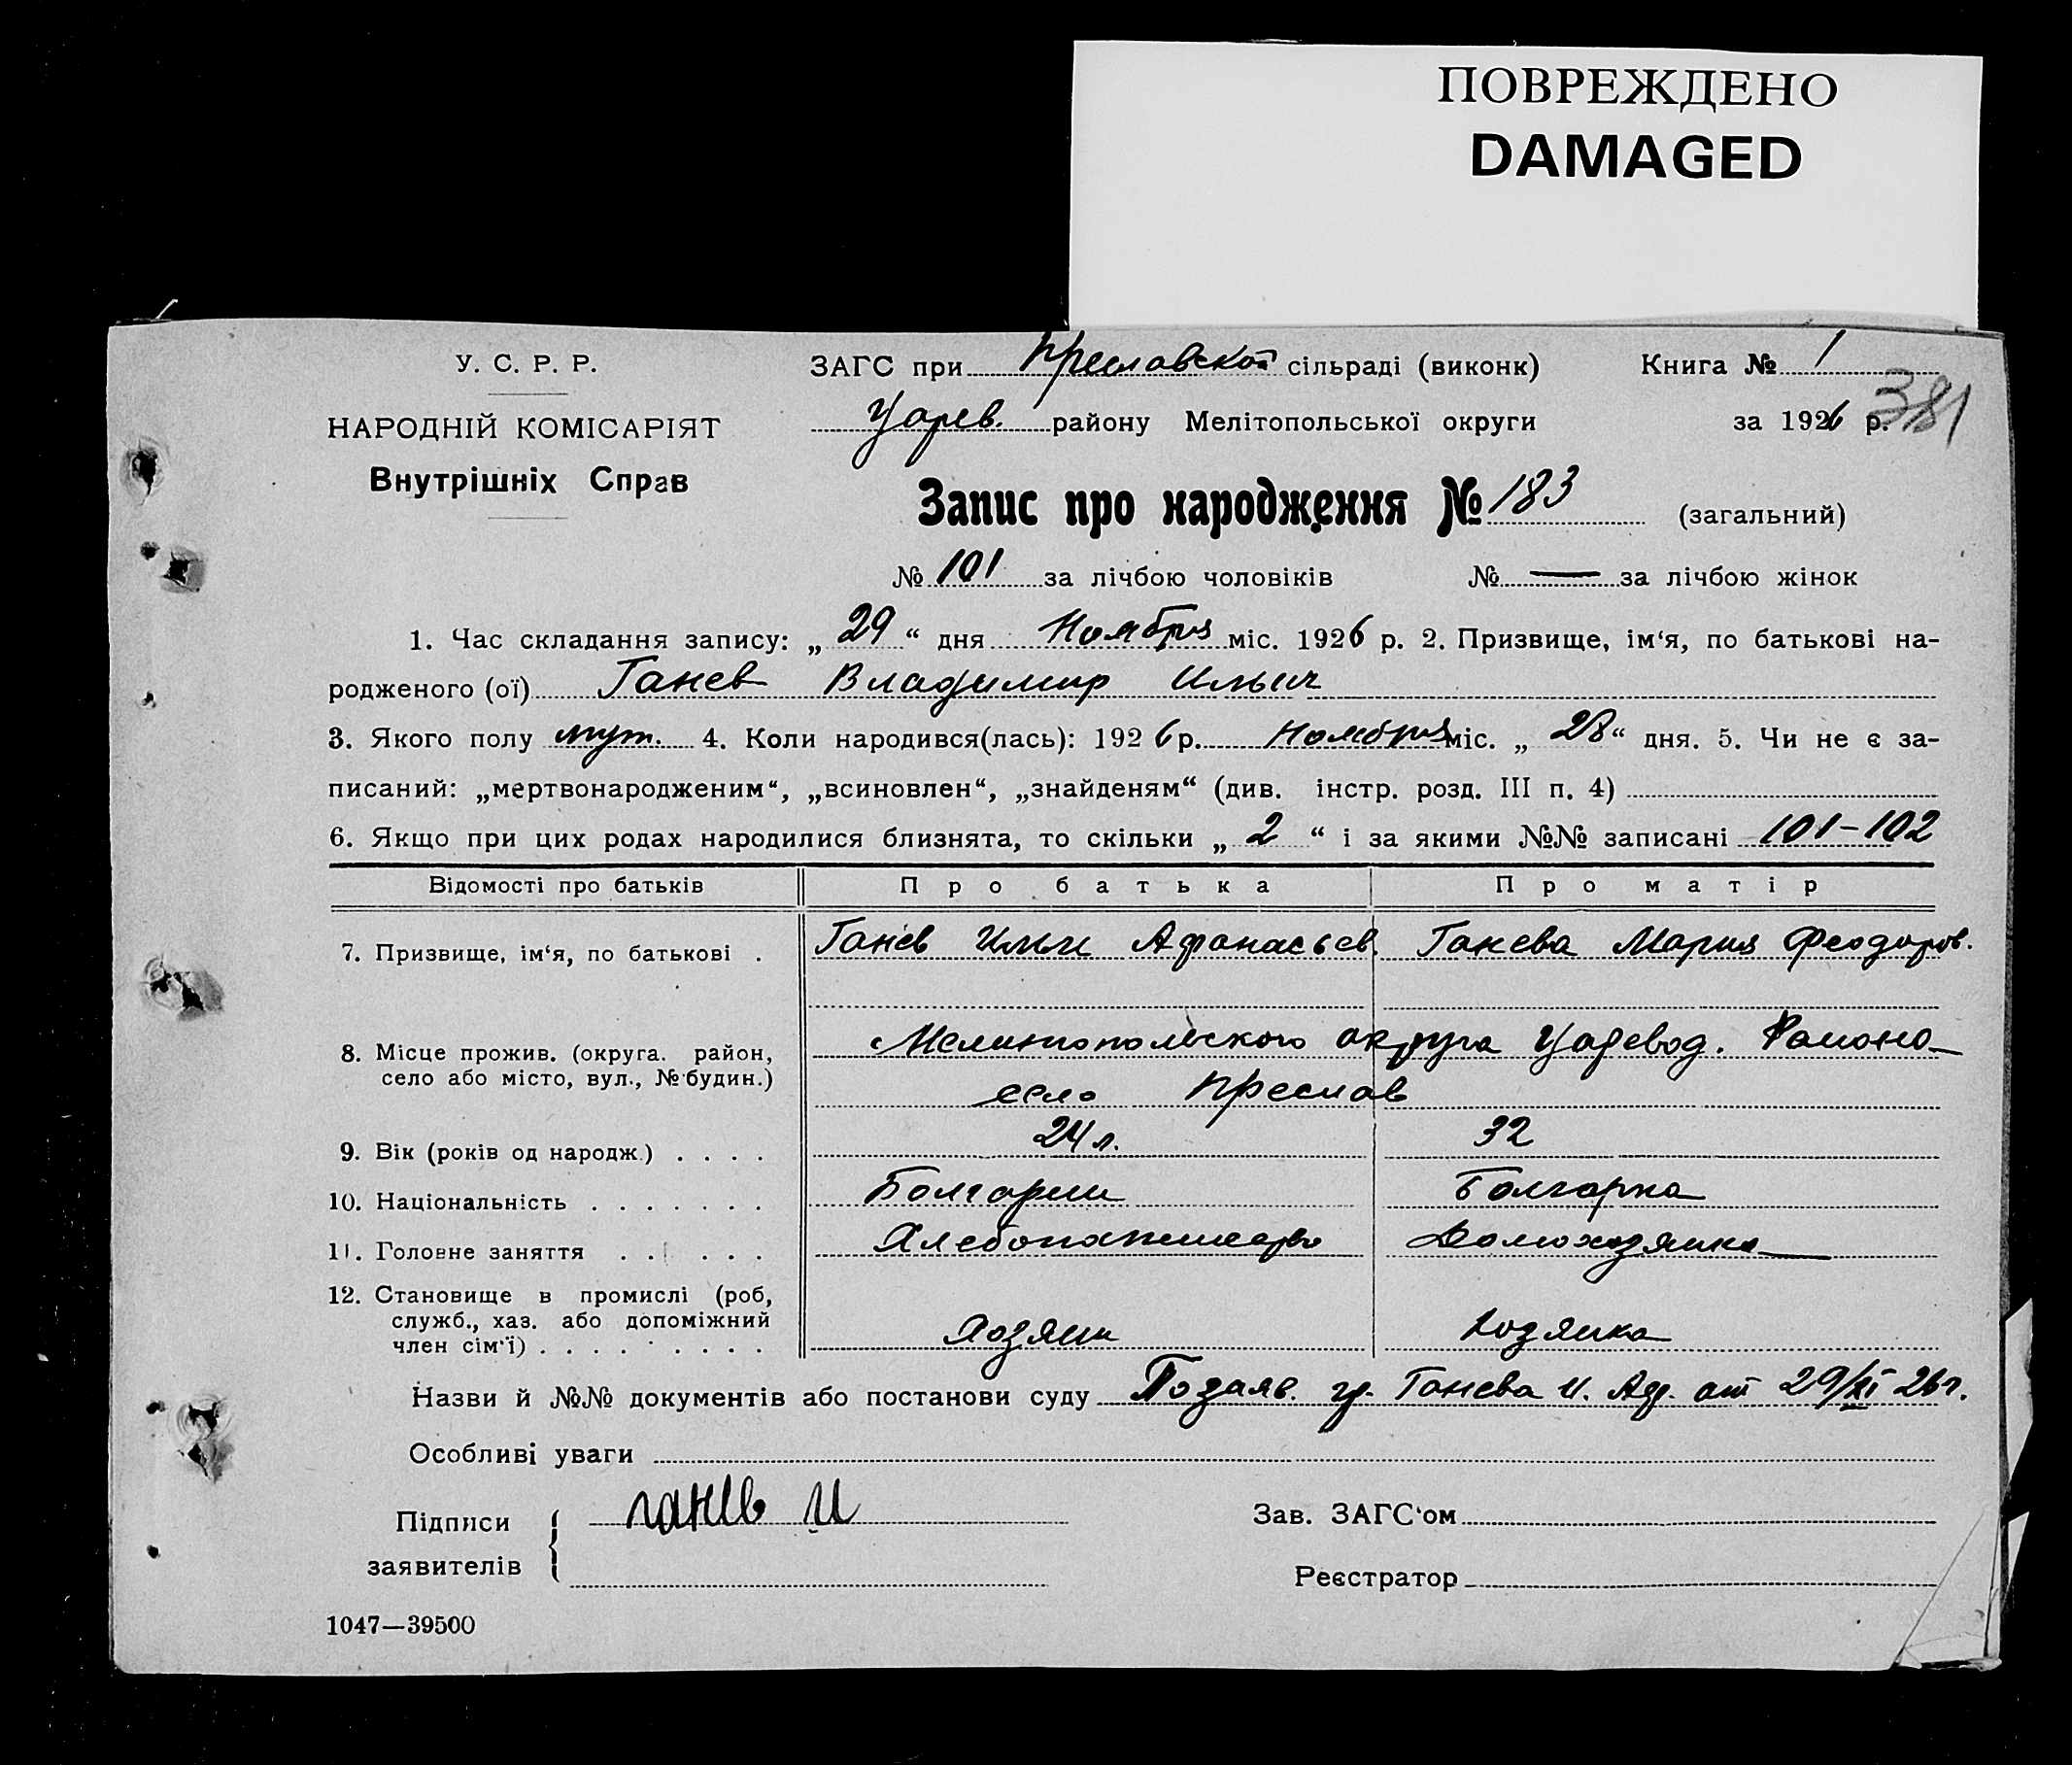 ПОВРЕЖДЕНО
DAMAGED
У. С. Р. Р.
НАРОДНІЙ КОМІСАРІЯТ
Внутрішніх Справ
ЗАГС при Преславской сільраді (виконк) Книга № 1
Царев. району Мелітопольської округи за 1926 р. 381
Запис про народження № 183 (загальний)
№ 101 за лічбою чоловіків № — за лічбою жінок
1. Час складання запису: „ 29 “ дня Ноября міс. 1926 р. 2. Призвище, ім‘я, по батькові на-
родженого (ої) Ганев Владимир Ильич
3. Якого полу муж. 4. Коли народився(лась): 1926 р. Ноября міс. „ 28 “ дня. 5. Чи не є за-
писаний: „мертвонародженим“, „всиновлен“, „знайденям“ (див. інстр. розд. III п. 4)
6. Якщо при цих родах народилися близнята, то скільки „ 2 “ і за якими №№ записані 101-102
Відомості про батьків Про батька Про матір
7. Призвище, ім‘я, по батькові . Ганев Илья Афанасьев. Ганева Мария Феодоров.
8. Місце прожив. (округа. район, Мелитопольского округа Царевод. Района
село або місто, вул., № будин.) село Преслав
9. Вік (років од народж.) . . . . 24 л. 32
10. Національність . . . . . . . Болгарин Болгарка
11. Головне заняття . . . . . . Хлебопашество Домохозяйка
12. Становище в промислі (роб,
служб., хаз. або допоміжний
член сім‘ї) . . . . . . . . . Хозяин Хозяйка
Назви й №№ документів або постанови суду По заяв. гр. Ганева И. Аф. от 29/XI 26 г.
Особливі уваги
Підписи ганев и Зав. ЗАГС‘ом
заявителів
Реєстратор
1047—39500